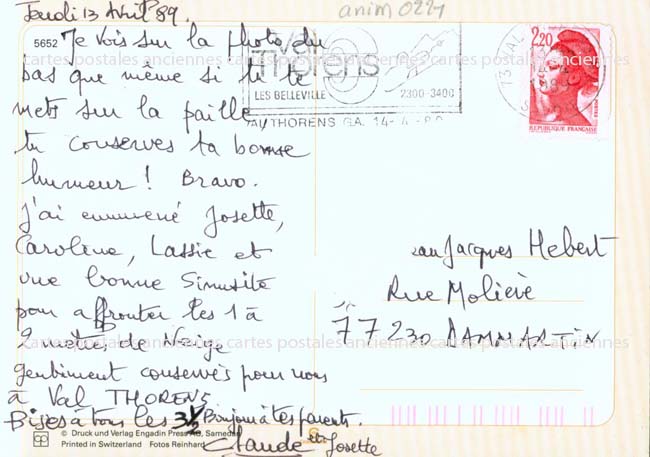 Jeudi 13 Avril 89.
anim 0221
5652 Je vois sur la photo du
bas que même si tu te
mets sur la paille,
tu conserves ta bonne
humeur ! Bravo.
J'ai emmené Josette,
Caroline, Lassie et
une bonne Sinusite
pour affronter les 1 à
2 mètres de Neige
gentiment conservés pour nous
à Val THORENS
Bises à tous les 3 Bonjour à tes parents.
Claude et Josette
val
THORENS
LES BELLEVILLE
2300-3400
VAL THORENS GA. 14-4-89
73 VAL
2,20
REPUBLIQUE FRANÇAISE
Jean Jacques Hebert
Rue Molière
77230 DAMMARTIN
cartes postales anciennes cartes postales anciennes cartes postales anciennes
cartes postales anciennes cartes postales anciennes cartes postales anciennes
© Druck und Verlag Engadin Press AG, Samedan
Printed in Switzerland Fotos Reinhard